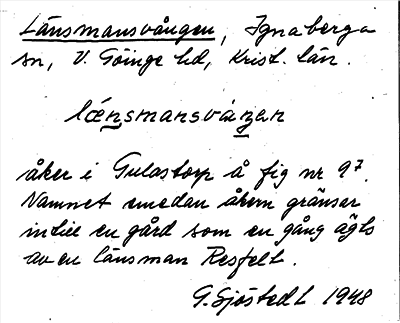 Länsmansvången, Ignaberga
sn, V. Göinge hd, Krist. län.
lænsmansvåŋen
åker i Gulastorp å fig nr 9⁷.
Namnet emedan åkern gränsar
intill en gård som en gång ägts
av en länsman Resfelt.
G. Sjöstedt 1948